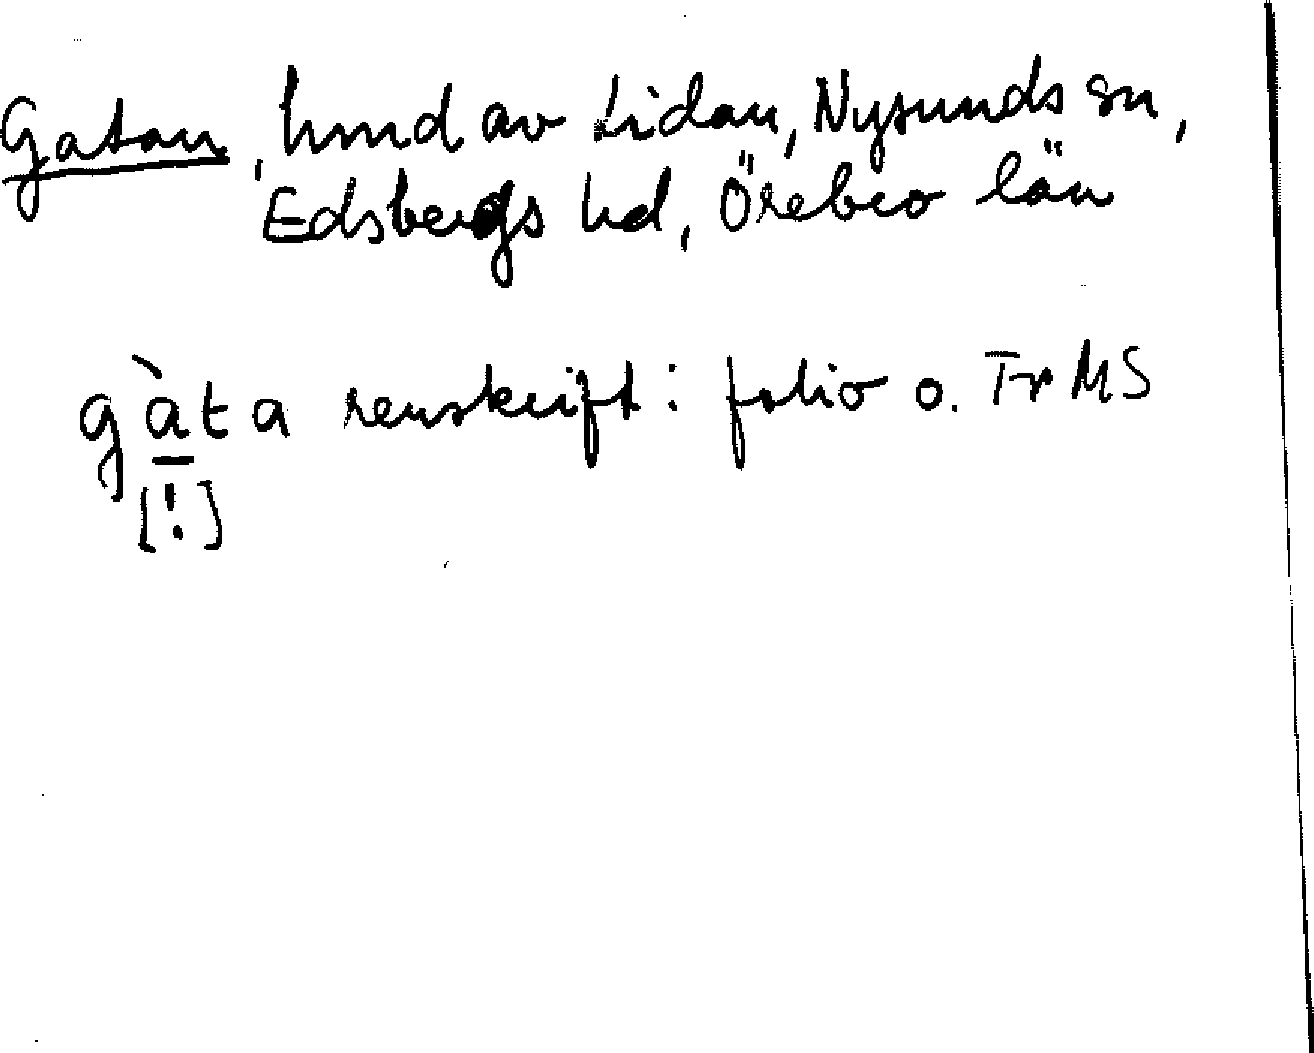 Gatan, hmd av Lidan, Nysunds sn,
Edsbergs hd, Örebro län
gàta renskrift: folio o. Tr MS
[!]